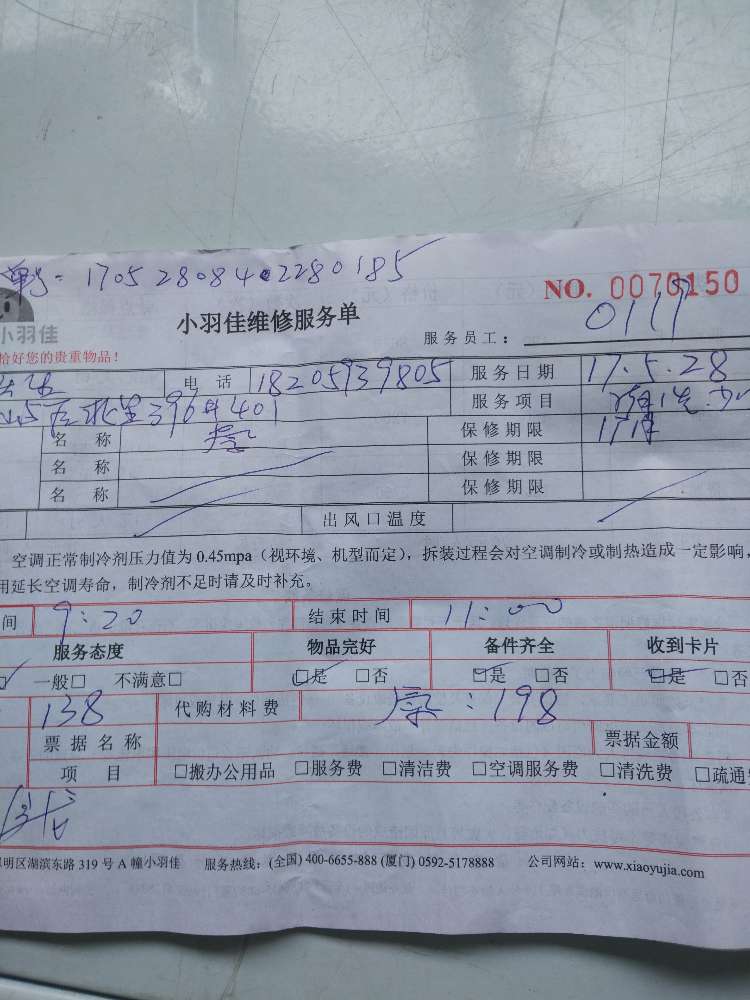 170528084022280185
NO. 0070150
小羽佳维修服务单
小羽佳
服务员工： 0117
恰好您的贵重物品！
电话 18205939805 服务日期 17.5.28
396 401 服务项目
名称 保修期限
名称 保修期限
名称 保修期限
出风口温度
空调正常制冷剂压力值为 0.45mpa（视环境、机型而定），拆装过程会对空调制冷或制热造成一定影响，
用延长空调寿命，制冷剂不足时请及时补充。
间 9:20 结束时间 11:00
服务态度 物品完好 备件齐全 收到卡片
一般□ 不满意□ □是 □否 □是 □否 □是 □否
138 代购材料费 ：198
票据名称 票据金额
项目 □搬办公用品 □服务费 □清洁费 □空调服务费 □清洗费 □疏通
明区湖滨东路 319 号 A 幢小羽佳 服务热线：(全国) 400-6655-888 (厦门) 0592-5178888 公司网站：www.xiaoyujia.com